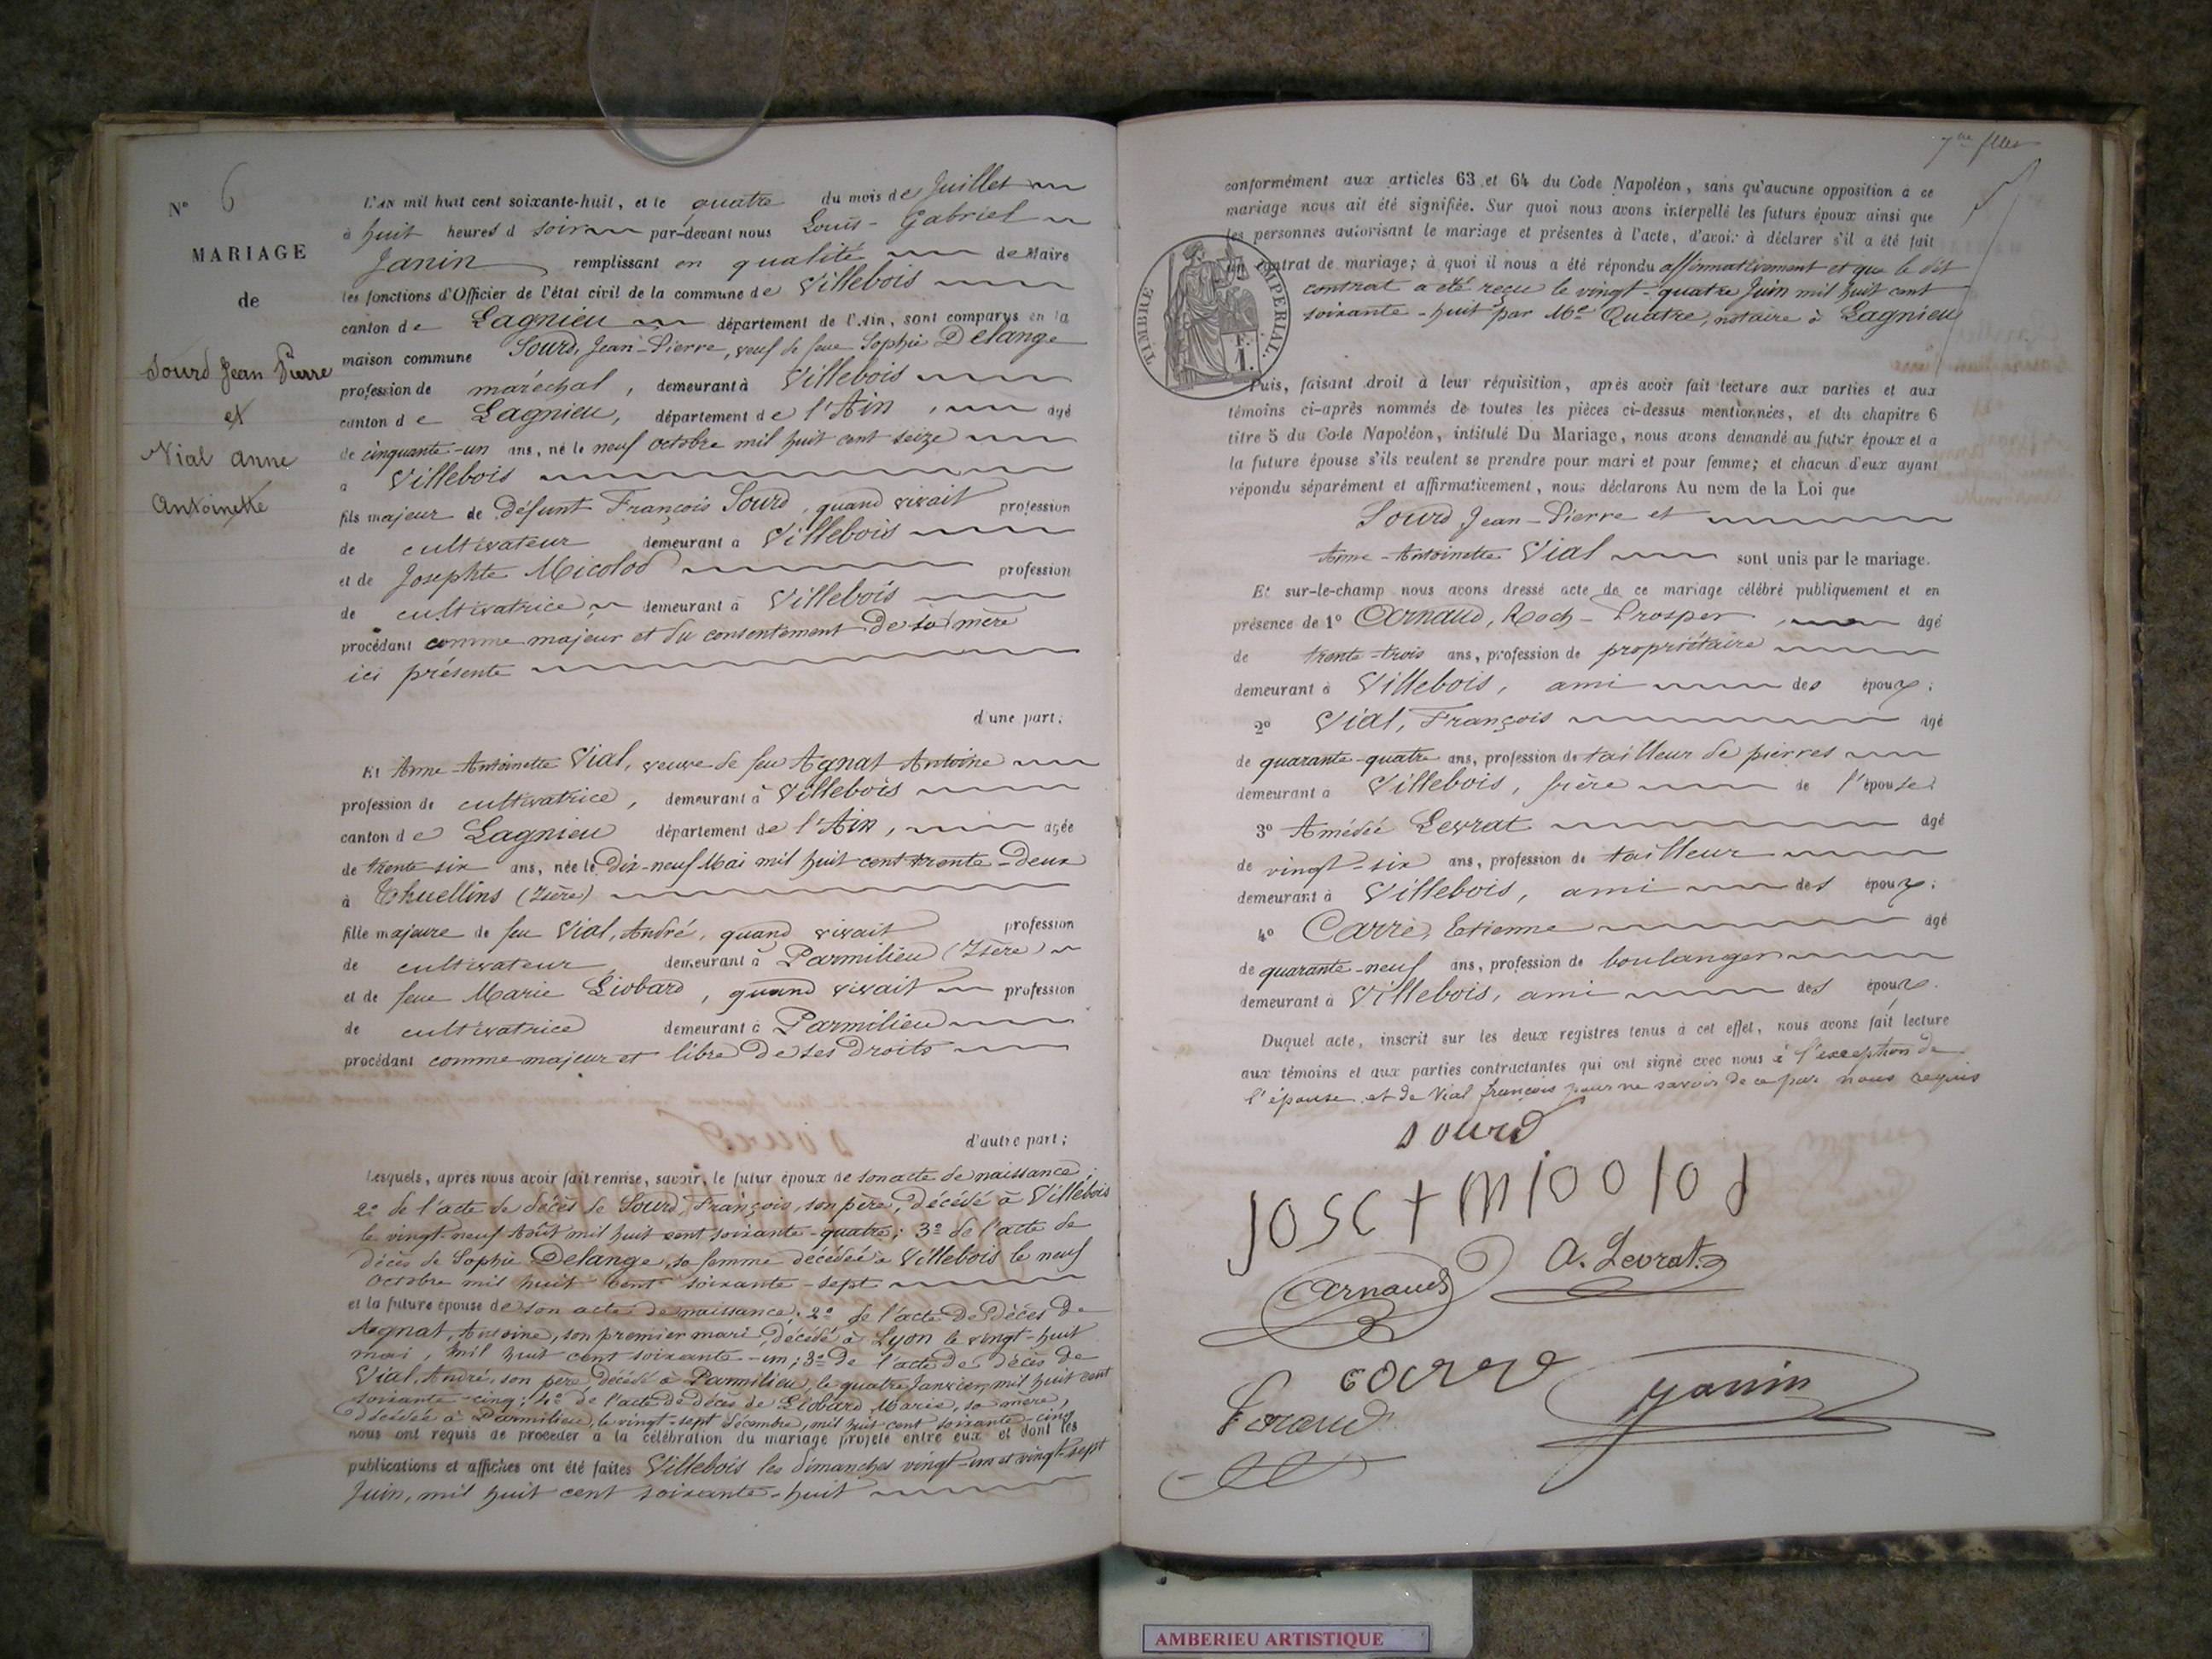 N° 6
MARIAGE
de
Sourd Jean Pierre
et
Vial Anne
Antoinette
L'AN mil huit cent soixante-huit, et le quatre du mois de Juillet
à huit heures d soir par-devant nous Louis-Gabriel
Janin remplissant en qualité de Maire
les fonctions d'Officier de l'état civil de la commune de Villebois
canton de Lagnieu département de l'Ain, sont comparus en la
maison commune Sourd, Jean-Pierre, veuf de feue Sophie Delange
profession de maréchal, demeurant à Villebois
canton de Lagnieu, département de l'Ain, âgé
de cinquante-un ans, né le neuf octobre mil huit cent seize
à Villebois
fils majeur de défunt François Sourd, quand vivait profession
de cultivateur demeurant à Villebois
et de Josephte Micolod profession
de cultivatrice demeurant à Villebois
procédant comme majeur et du consentement de sa mère
ici présente
d'une part;
Et Anne-Antoinette Vial, veuve de feu Agnat Antoine
profession de cultivatrice, demeurant à Villebois
canton de Lagnieu département de l'Ain, âgée
de trente six ans, née le dix-neuf Mai mil huit cent trente-deux
à Thuellins (Isère)
fille majeure de feu Vial, André, quand vivait profession
de cultivateur demeurant à Parmilieu (Isère)
et de feue Marie Liobard, quand vivait profession
de cultivatrice demeurant à Parmilieu
procédant comme majeur et libre de ses droits
d'autre part;
Lesquels, après nous avoir fait remise, savoir, le futur époux de son acte de naissance;
2° de l'acte de décès de Sourd, François, son père, décédé à Villebois
le vingt-neuf Août mil huit cent soixante-quatre; 3° de l'acte de
décès de Sophie Delange, sa femme décédée à Villebois le neuf
Octobre mil huit cent soixante-sept
et la future épouse de son acte de naissance; 2° de l'acte de décès de
Agnat, Antoine, son premier mari, décédé à Lyon le vingt-huit
mai, mil huit cent soixante-un; 3° de l'acte de décès de
Vial, André, son père décédé à Parmilieu, le quatre Janvier, mil huit cent
soixante-cinq; 4° de l'acte de décès de Liobard Marie, sa mère,
décédée à Parmilieu, le vingt-sept décembre, mil huit cent soixante-cinq
nous ont requis de procéder à la célébration du mariage projeté entre eux et dont les
publications et affiches ont été faites Villebois les dimanches vingt-un et vingt-sept
Juin, mil huit cent soixante-huit
conformément aux articles 63 et 64 du Code Napoléon, sans qu'aucune opposition à ce
mariage nous ait été signifiée. Sur quoi nous avons interpellé les futurs époux ainsi que
les personnes autorisant le mariage et présentes à l'acte, d'avoir à déclarer s'il a été fait
un contrat de mariage; à quoi il nous a été répondu affirmativement et que le dit
contrat a été reçu le vingt-quatre Juin mil huit cent
soixante-huit par Me Quatre, notaire à Lagnieu
TIMBRE IMPÉRIAL.
F.
1.
Puis, faisant droit à leur réquisition, après avoir fait lecture aux parties et aux
témoins ci-après nommés de toutes les pièces ci-dessus mentionnées, et du chapitre 6
titre 5 du Code Napoléon, intitulé Du Mariage, nous avons demandé au futur époux et à
la future épouse s'ils veulent se prendre pour mari et pour femme; et chacun d'eux ayant
répondu séparément et affirmativement, nous déclarons Au nom de la Loi que
Sourd Jean-Pierre et
Anne-Antoinette Vial sont unis par le mariage.
Et sur-le-champ nous avons dressé acte de ce mariage célébré publiquement et en
présence de 1° Arnaud, Roch-Prosper, âgé
de trente-trois ans, profession de propriétaire
demeurant à Villebois, ami des époux;
2° Vial, François âgé
de quarante-quatre ans, profession de tailleur de pierres
demeurant à Villebois, frère de l'épouse
3° Amédée Levrat âgé
de vingt-six ans, profession de tailleur
demeurant à Villebois, ami des époux;
4° Carré, Etienne âgé
de quarante-neuf ans, profession de boulanger
demeurant à Villebois, ami des époux.
Duquel acte, inscrit sur les deux registres tenus à cet effet, nous avons fait lecture
aux témoins et aux parties contractantes qui ont signé avec nous à l'exception de
l'épouse et de Vial françois pour ne savoir de ce par nous requis
sourd
A. Levrat
Arnaud
carre
Janin
AMBERIEU ARTISTIQUE